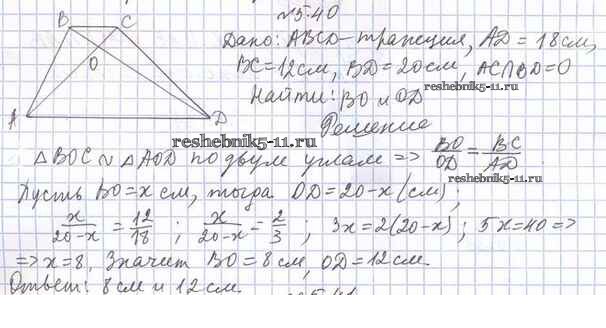 №5.40
B C
O
A D
Дано: ABCD – трапеция, AD = 18 см,
BC = 12 см, BD = 20 см, AC∩BD = O
Найти: BO и OD
Решение
reshebnik5-11.ru
△BOC ∾ △AOD по двум углам => BO/OD = BC/AD
reshebnik5-11.ru
Пусть BO = x см, тогда OD = 20-x (см);
x/20-x = 12/18 ; x/20-x = 2/3 ; 3x = 2(20-x) ; 5x = 40 =>
=> x = 8. Значит BO = 8 см, OD = 12 см.
reshebnik5-11.ru
Ответ: 8 см и 12 см.